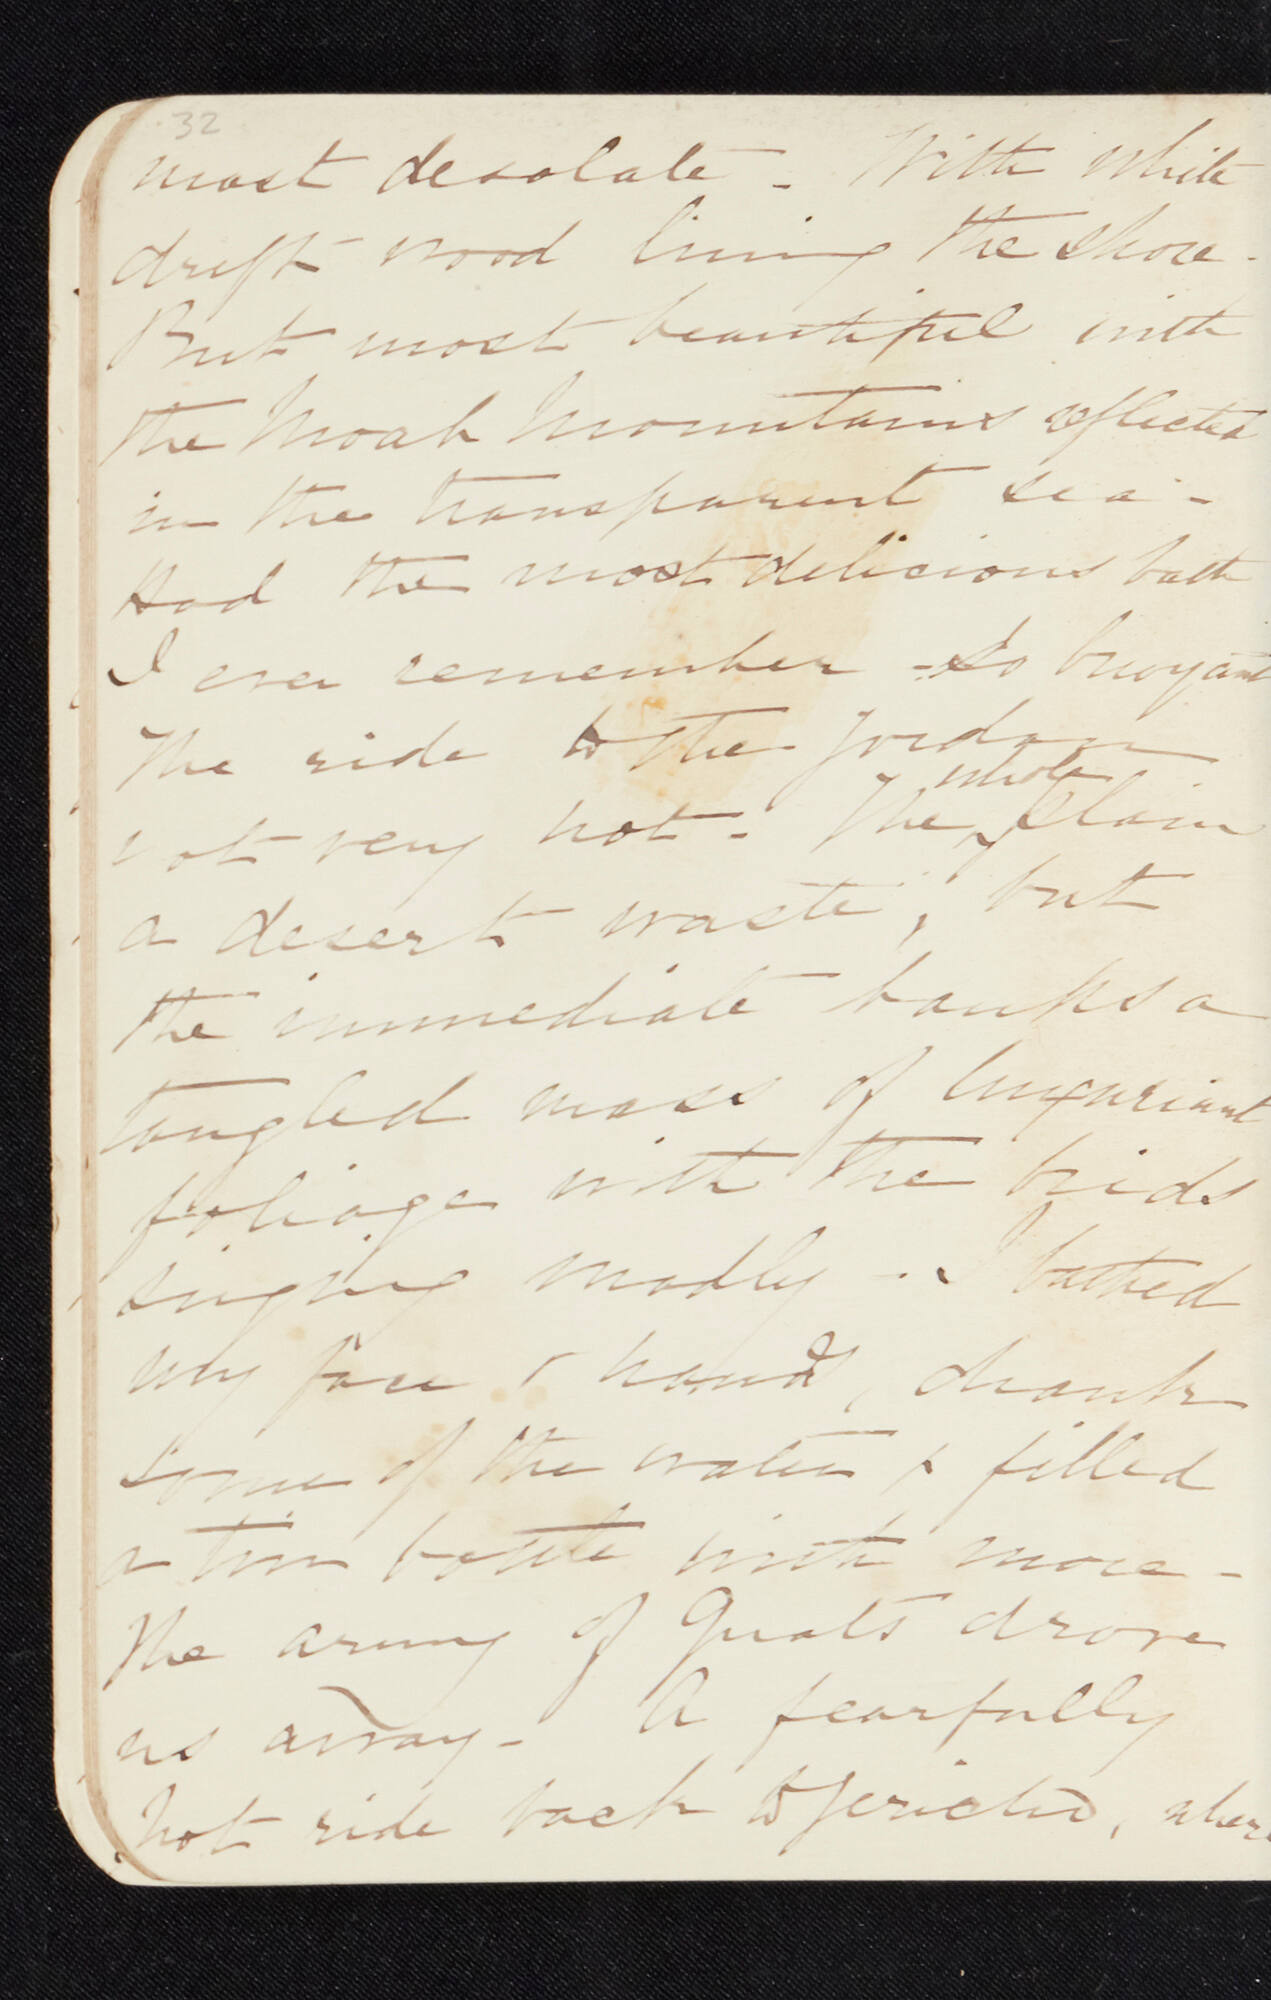 32
most desolate - With white
drift wood lining the shore -
But most beautiful with
the Moab Mountains reflected
in the transparent sea -
Had the most delicious bath
I ever remember - so buoyant
The ride to the Jordan
not very hot - The whole plain
a desert waste, but
the immediate banks a
tangled mass of luxuriant
foliage with the birds
singing madly - I bathed
my face & hands, drank
some of the water & filled
a tin bottle with more -
The army of Gnats drove
us away - A fearfully
hot ride back to Jericho, where